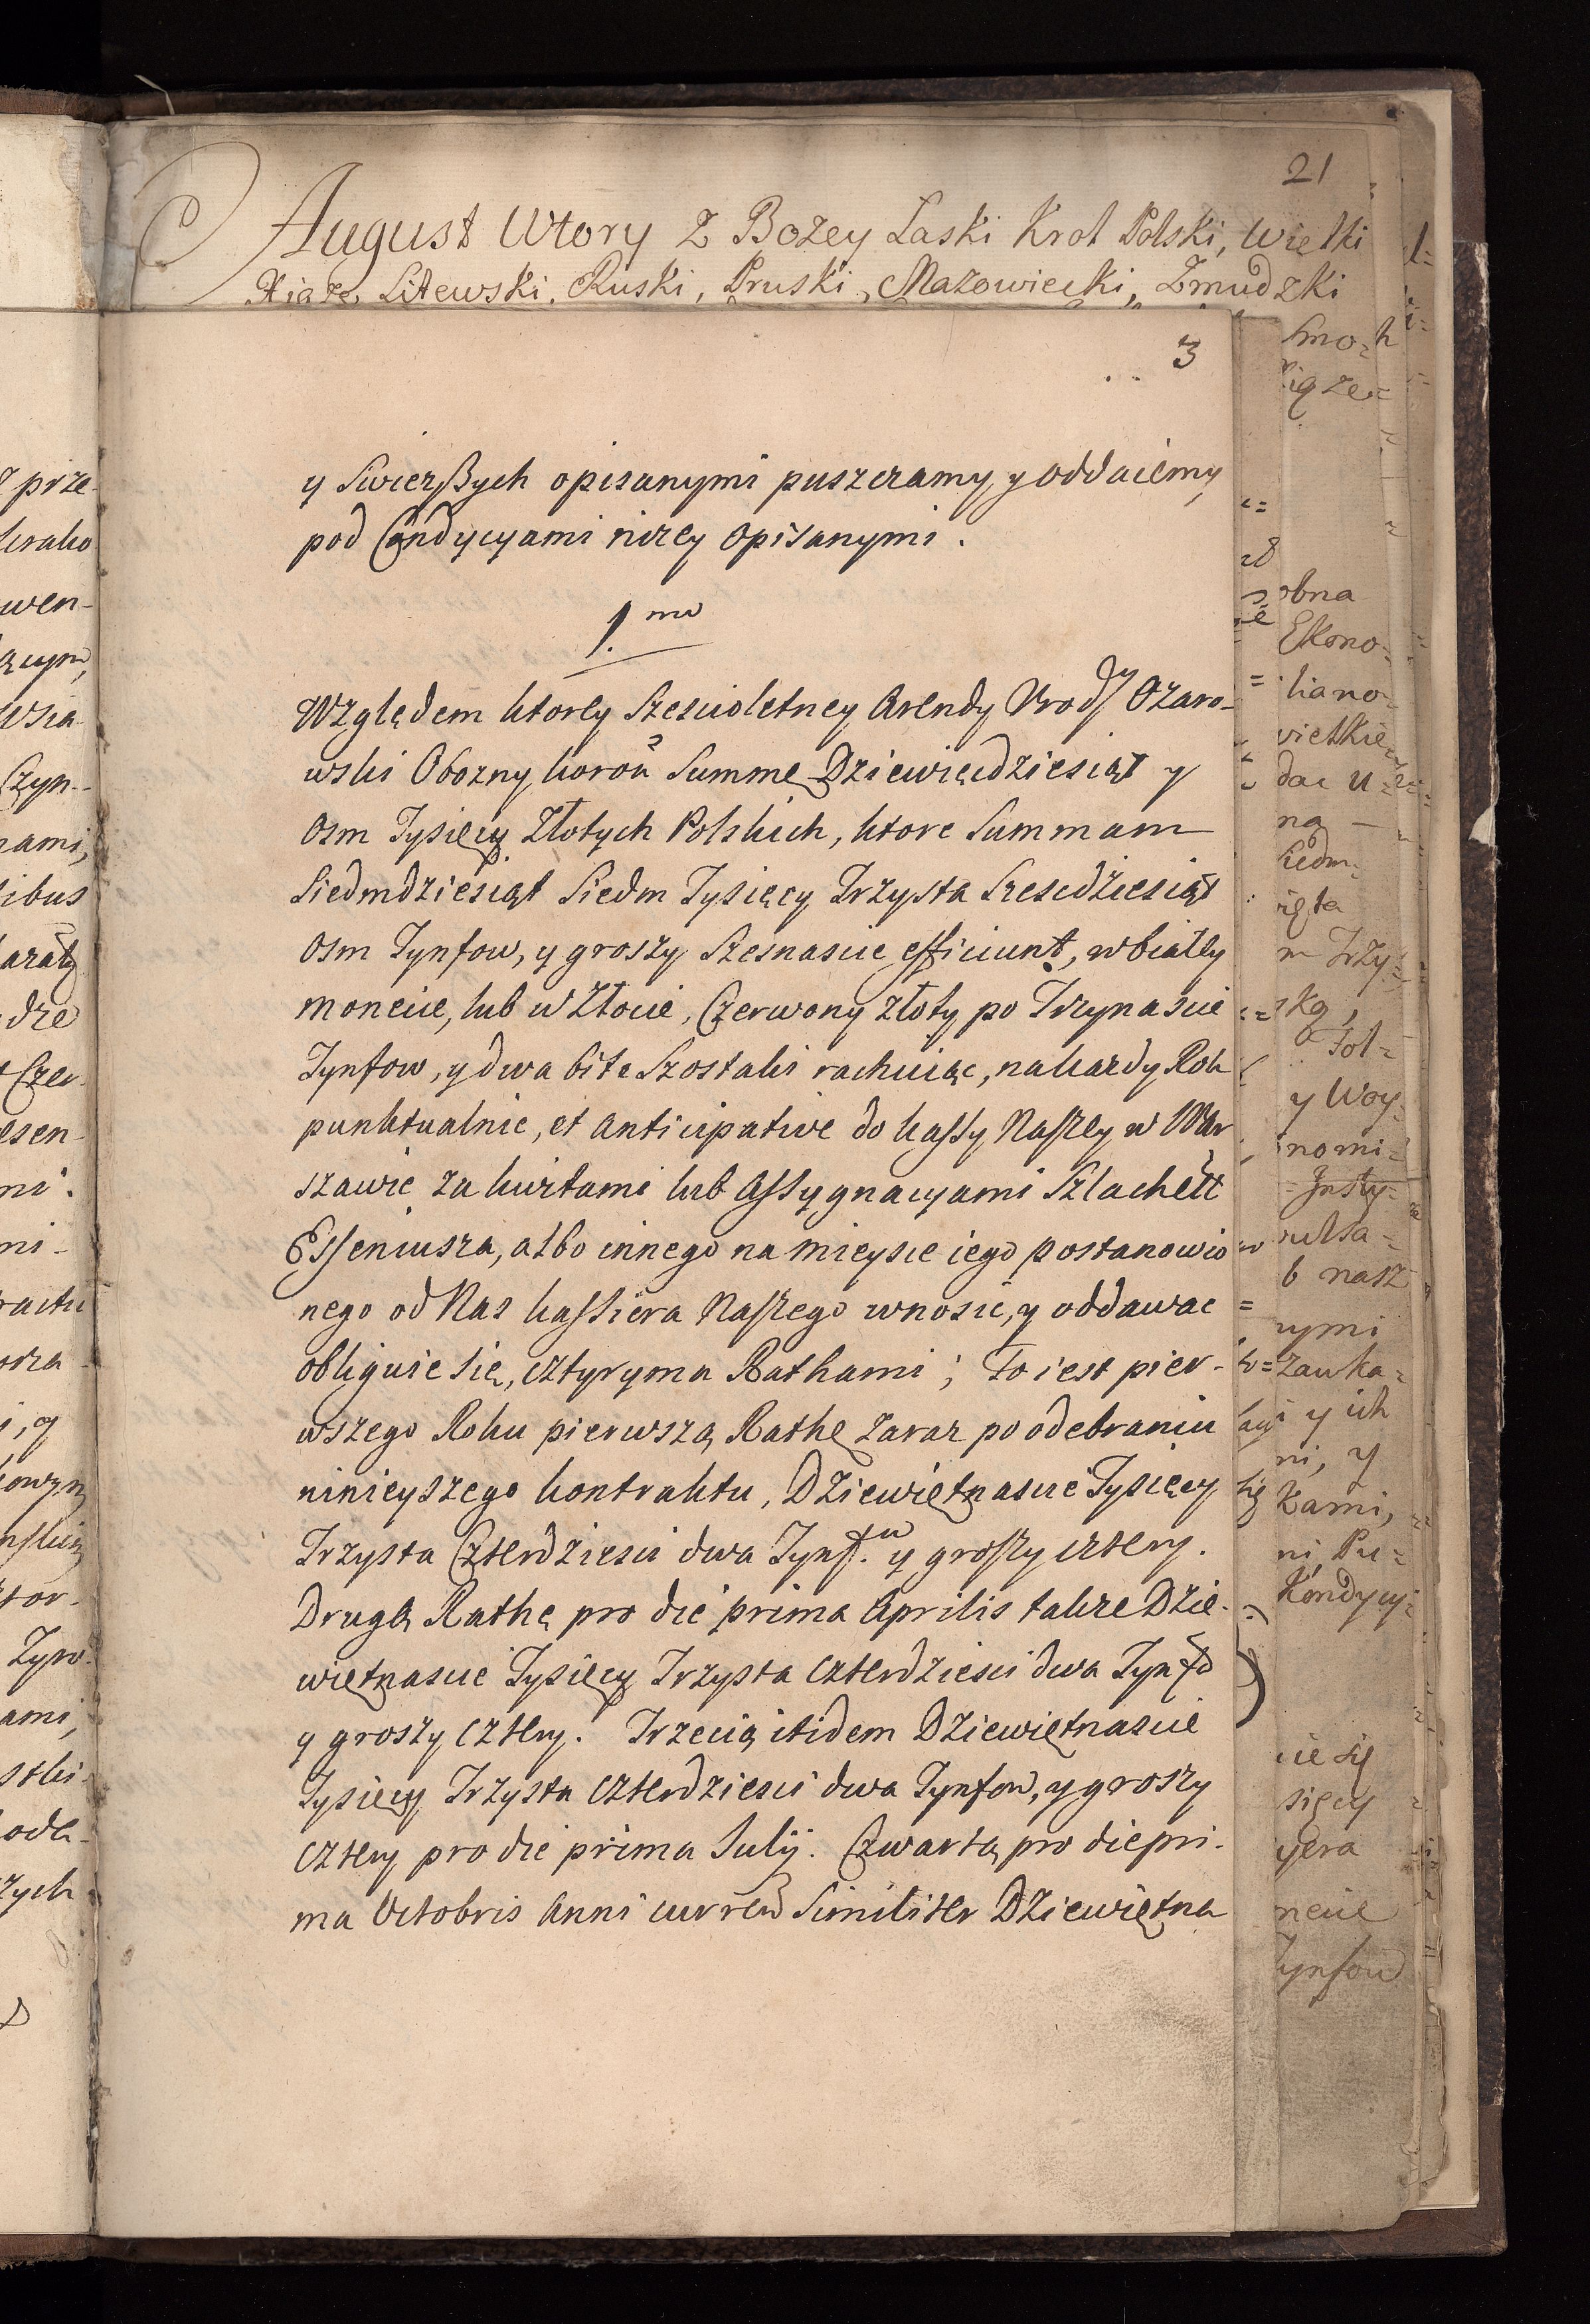 21
August Wtory Z Bozey Laski Krol Polski, Wielki
Xiąze, Litewski, Ruski, Pruski, Mazowiecki, Zmudzki
3
y Swierzßych opisanymi puszczamy y oddaiemy
pod Condycyami nizey opisanymi.
1.mo
Względem ktorey Szescioletney Arendy Urodzy Ozaro-
wski Obozny koron Summę Dziewięćdziesiąt y
Osm Tysięcy Złotych Polskich, ktore Summam
Siedmdziesiąt Siedm Tysięcy Trzysta Szescdziesiąt
Osm Tynfow, y groszy Szesnascie efficiunt, w białey
monecie, lub w Złocie, Czerwony złoty po Trzynascie
Tynfow, y dwa bite Szostaki rachuiąc, na kazdy Rok
punktualnie, et anticipative do kassy Naszey w War
szawie za kwitami lub Assygnacyami Szlachett
Esseniusza, albo innego na mieysce iego postanowio
nego od Nas kassiera Naszego wnosic, y oddawac
obliguie się, cztyryma Rathami; To iest pier-
wszego Roku pierwszą Rathę zaraz po odebraniu
ninieyszego kontraktu, Dziewiętnascie Tysięcy
Trzysta Czterdziesci dwa Tynf.w y groszy cztery.
Drugą Rathę pro die prima Aprilis takze Dzie-
więtnascie Tysięcy Trzysta czterdziesci dwa Tynfo
y groszy cztery. Trzecią itidem Dziewiętnascie
Tysięcy Trzysta czterdziesci dwa Tynfow, y groszy
cztery pro die prima Julij. Czwartą pro die pri-
ma Octobris Anni curren Similiter Dziewiętna